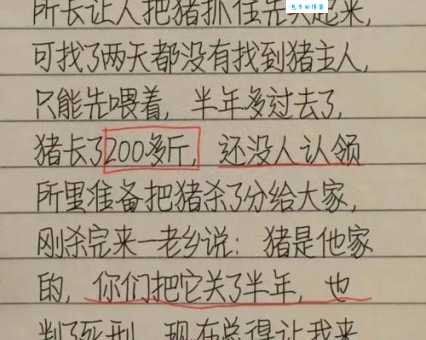 所长让人把猪抓住先关起来，
可找了两天都没有找到猪主人，
只能先喂着，半年多过去了，
猪长了200多斤，还没人认领
所里准备把猪杀了分给大家，
刚杀完来一老乡说：猪是他家
的，你们把它关了半年，也
判了死刑，现在总得让我来